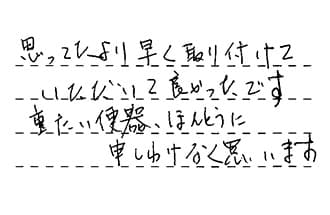 思ってたより早く取り付けて
いただいて良かったです
重たい便器、ほんとうに
申しわけなく思います